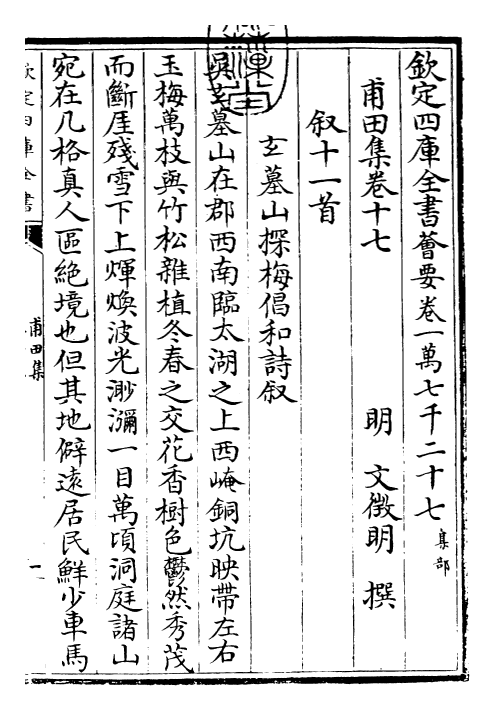 欽定四庫全書薈要卷一萬七千二十七集部
甫田集卷十七
明 文徵明 撰
叙十一首
玄墓山探梅倡和詩叙
吳玄墓山在郡西南臨太湖之上西崦銅坑映帶左右
玉梅萬枝與竹松雜植冬春之交花香樹色鬱然秀茂
而斷厓殘雪下上煇煥波光渺瀰一目萬頃洞庭諸山
宛在几格真人區絶境也但其地僻遠居民鮮少車馬
欽定四庫全書
甫田集
一